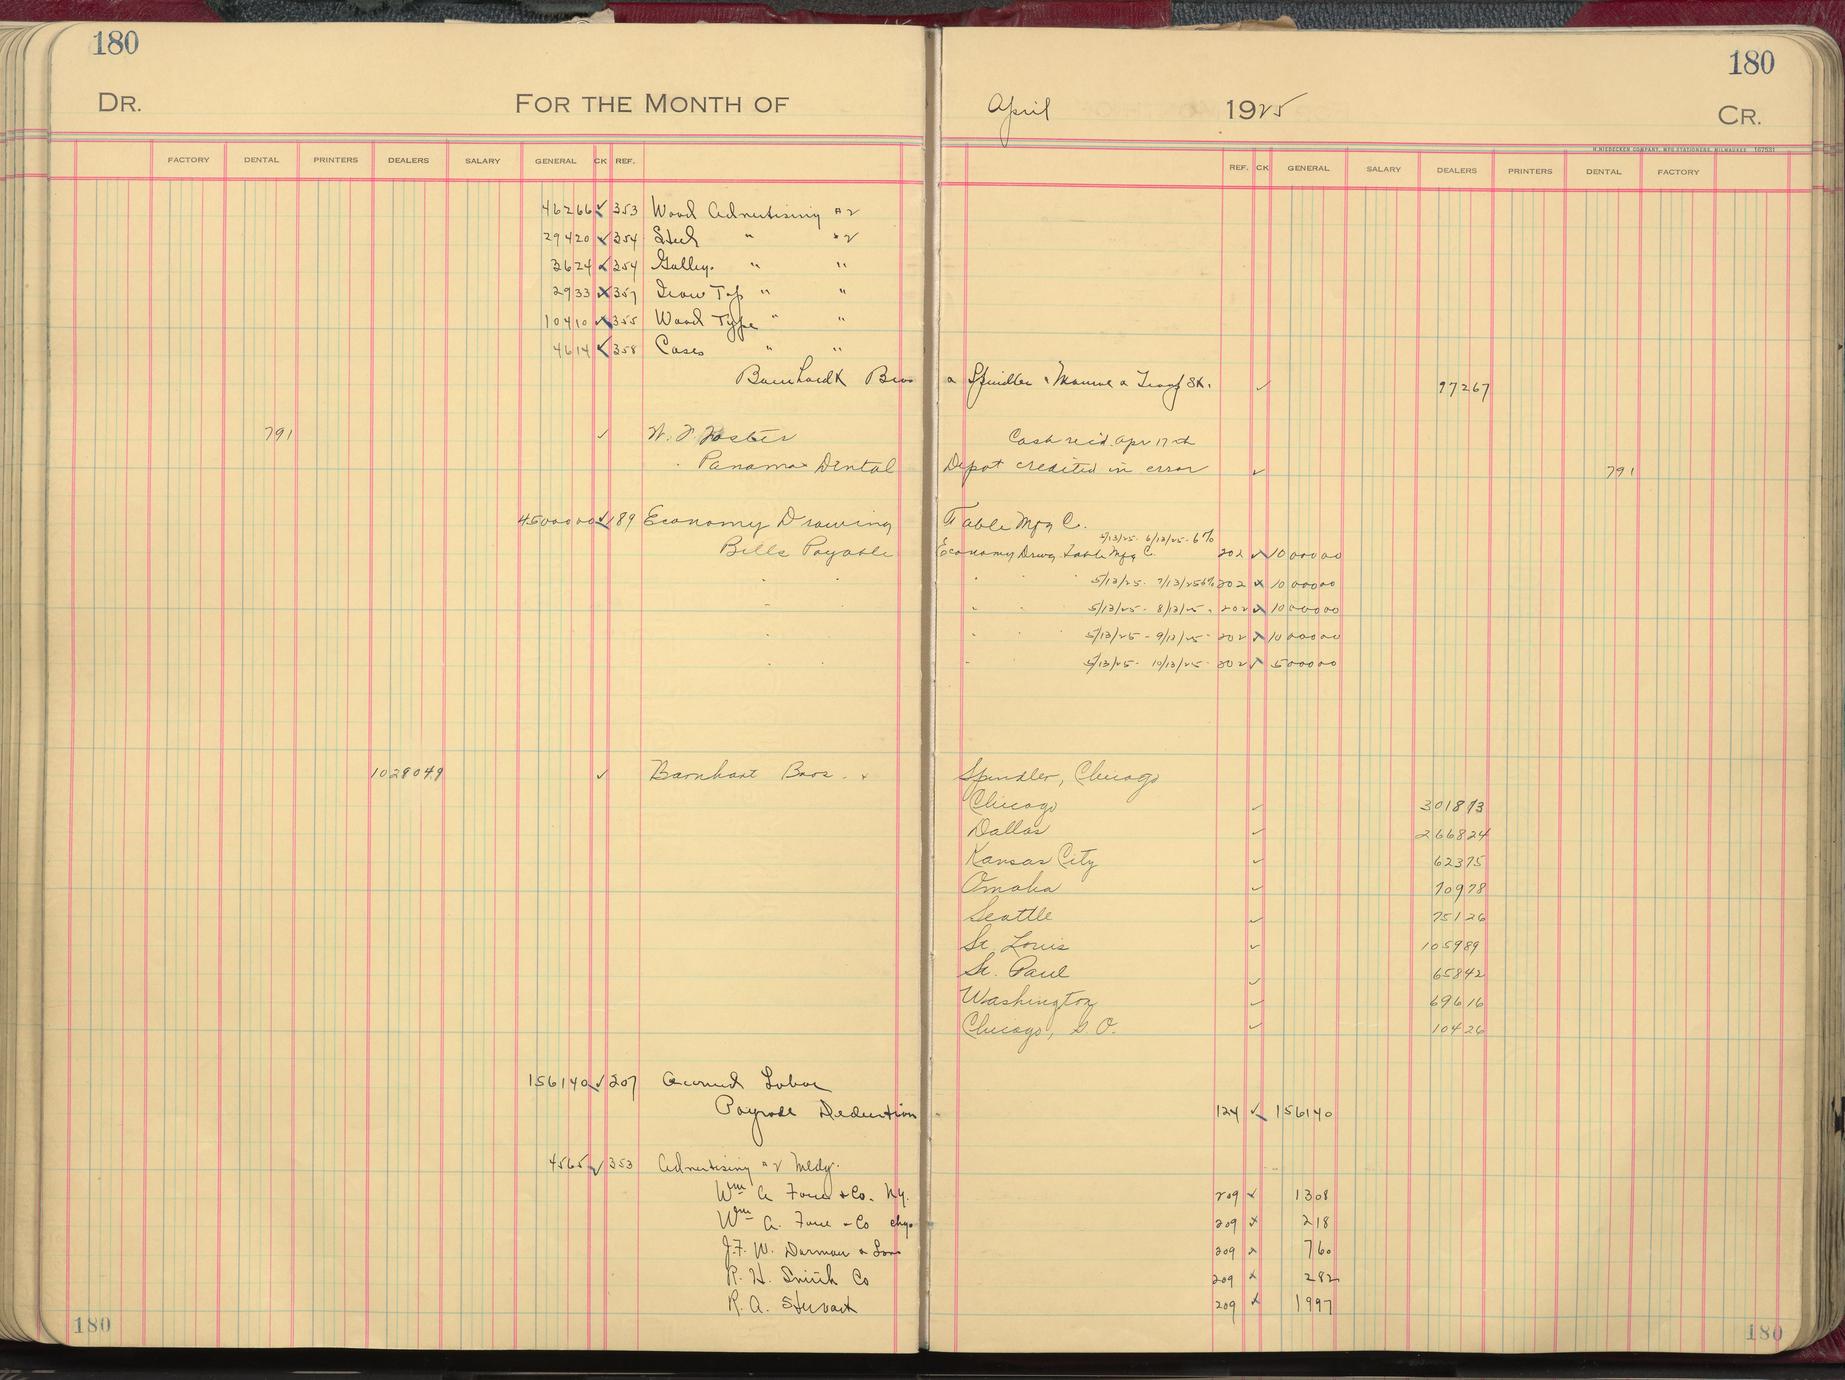 180 180
DR. FOR THE MONTH OF April 1925 CR.
H. NIEDECKEN COMPANY, MFG. STATIONERS, MILWAUKEE 167531
FACTORY DENTAL PRINTERS DEALERS SALARY GENERAL CK REF. REF. CK GENERAL SALARY DEALERS PRINTERS DENTAL FACTORY
46266 ✓ 353 Wood Advertising
29420 ✓ 354 Steel "
3624 ✓ 354 Galley " "
2933 357 " "
10410 355 Wood Type " "
4614 ✓ 358 Cases " "
Barnhardt Bros Spindler Monroe 97267
791 ✓ W. F. Foster Cash rec'd. Apr 17th
Panama Dental Depot credited in error ✓ 791
4500000 ✓ 189 Economy Drawing Table Mfg C.
5/13/25 - 6/13/25 - 6%
Bills Payable Economy Drwg. Table Mfg C. 202 ✓ 1000000
" " 5/13/25 - 7/13/25 6% 202 1000000
" " 5/13/25 - 8/13/25 " 202 1000000
" " 5/13/25 - 9/13/25 - 202 1000000
" " 5/13/25 - 10/13/25 - 202 500000
1029049 ✓ Barnhart Bros. & Spindler, Chicago
Chicago ✓ 301873
Dallas ✓ 266824
Kansas City ✓ 62375
Omaha ✓ 70978
Seattle ✓ 75126
St. Louis ✓ 105989
St. Paul ✓ 65842
Washington ✓ 69616
Chicago, S.O. ✓ 10426
156140 ✓ 207 Accrued Labor
Payroll Deduction 124 ✓ 156140
4565 ✓ 353 Advertising
Wm A Force & Co. N.Y. 209 1308
Wm A. Force & Co chgo 209 218
J. F. W. Dorman & Sons 209 760
R. H. Smith Co 209 282
R. A. Stewart 209 1997
180 180